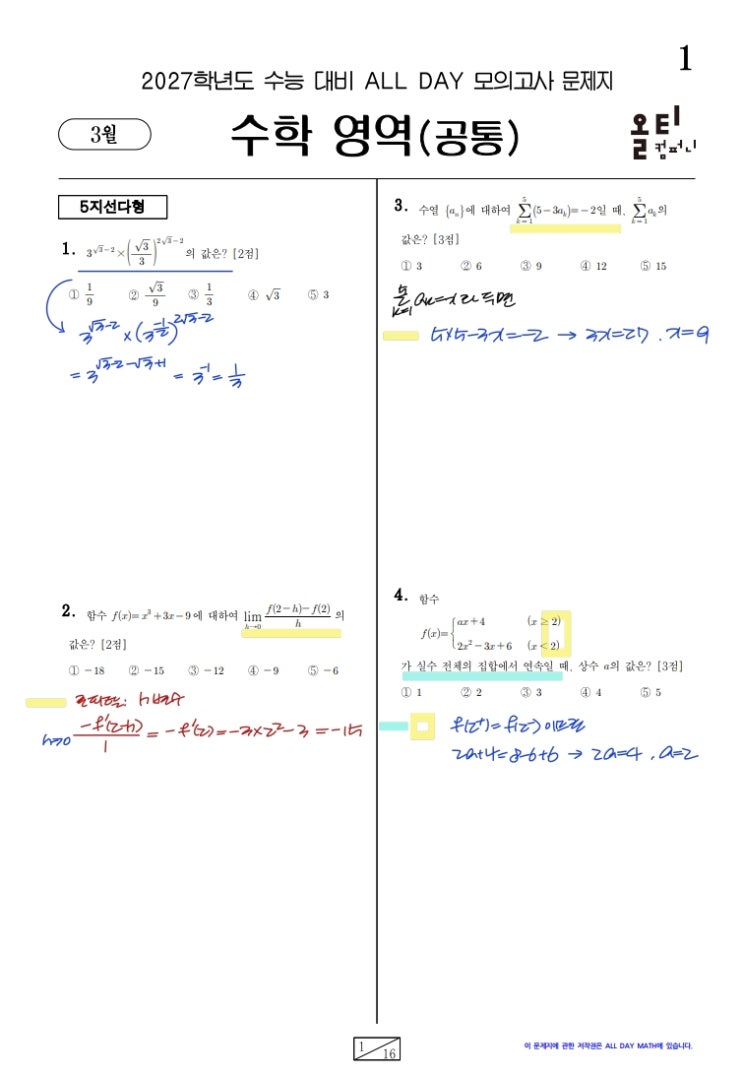 1
2027학년도 수능 대비 ALL DAY 모의고사 문제지
3월
수학 영역(공통)
올티컴퍼니
5지선다형
1. 3^{√3-2}×(√3/3)^{2√3-2} 의 값은? [2점]
① 1/9 ② √3/9 ③ 1/3 ④ √3 ⑤ 3
3^{√3-2}×(3^{-1/2})^{2√3-2}
= 3^{√3-2-√3+1} = 3^{-1} = 1/3
2. 함수 f(x)=x³+3x-9에 대하여 lim_{h→0} (f(2-h)-f(2))/h 의
값은? [2점]
① -18 ② -15 ③ -12 ④ -9 ⑤ -6
로피탈: h 변수
h→0 -f'(2-h)/1 = -f'(2) = -3×2²-3 = -15
3. 수열 {aₙ}에 대하여 ∑_{k=1}^{5}(5-3aₖ)=-2일 때, ∑_{k=1}^{5}aₖ의
값은? [3점]
① 3 ② 6 ③ 9 ④ 12 ⑤ 15
∑_{k=1}^{5} aₖ=x 라 두면
5×5-3x=-2 → 3x=27, x=9
4. 함수
f(x)={ax+4 (x≥2)
2x²-3x+6 (x<2)
가 실수 전체의 집합에서 연속일 때, 상수 a의 값은? [3점]
① 1 ② 2 ③ 3 ④ 4 ⑤ 5
f(2⁺)=f(2⁻) 이므로
2a+4=8-6+6 → 2a=4, a=2
1/16
이 문제지에 관한 저작권은 ALL DAY MATH에 있습니다.